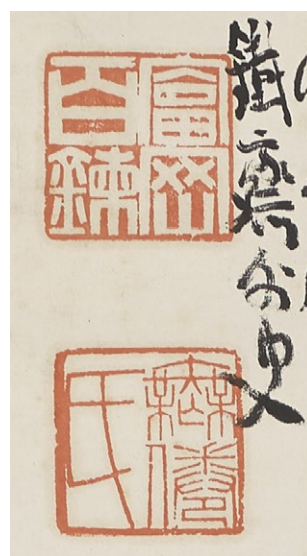 鐵齋外史
富岡
百鍊
無倦
氏